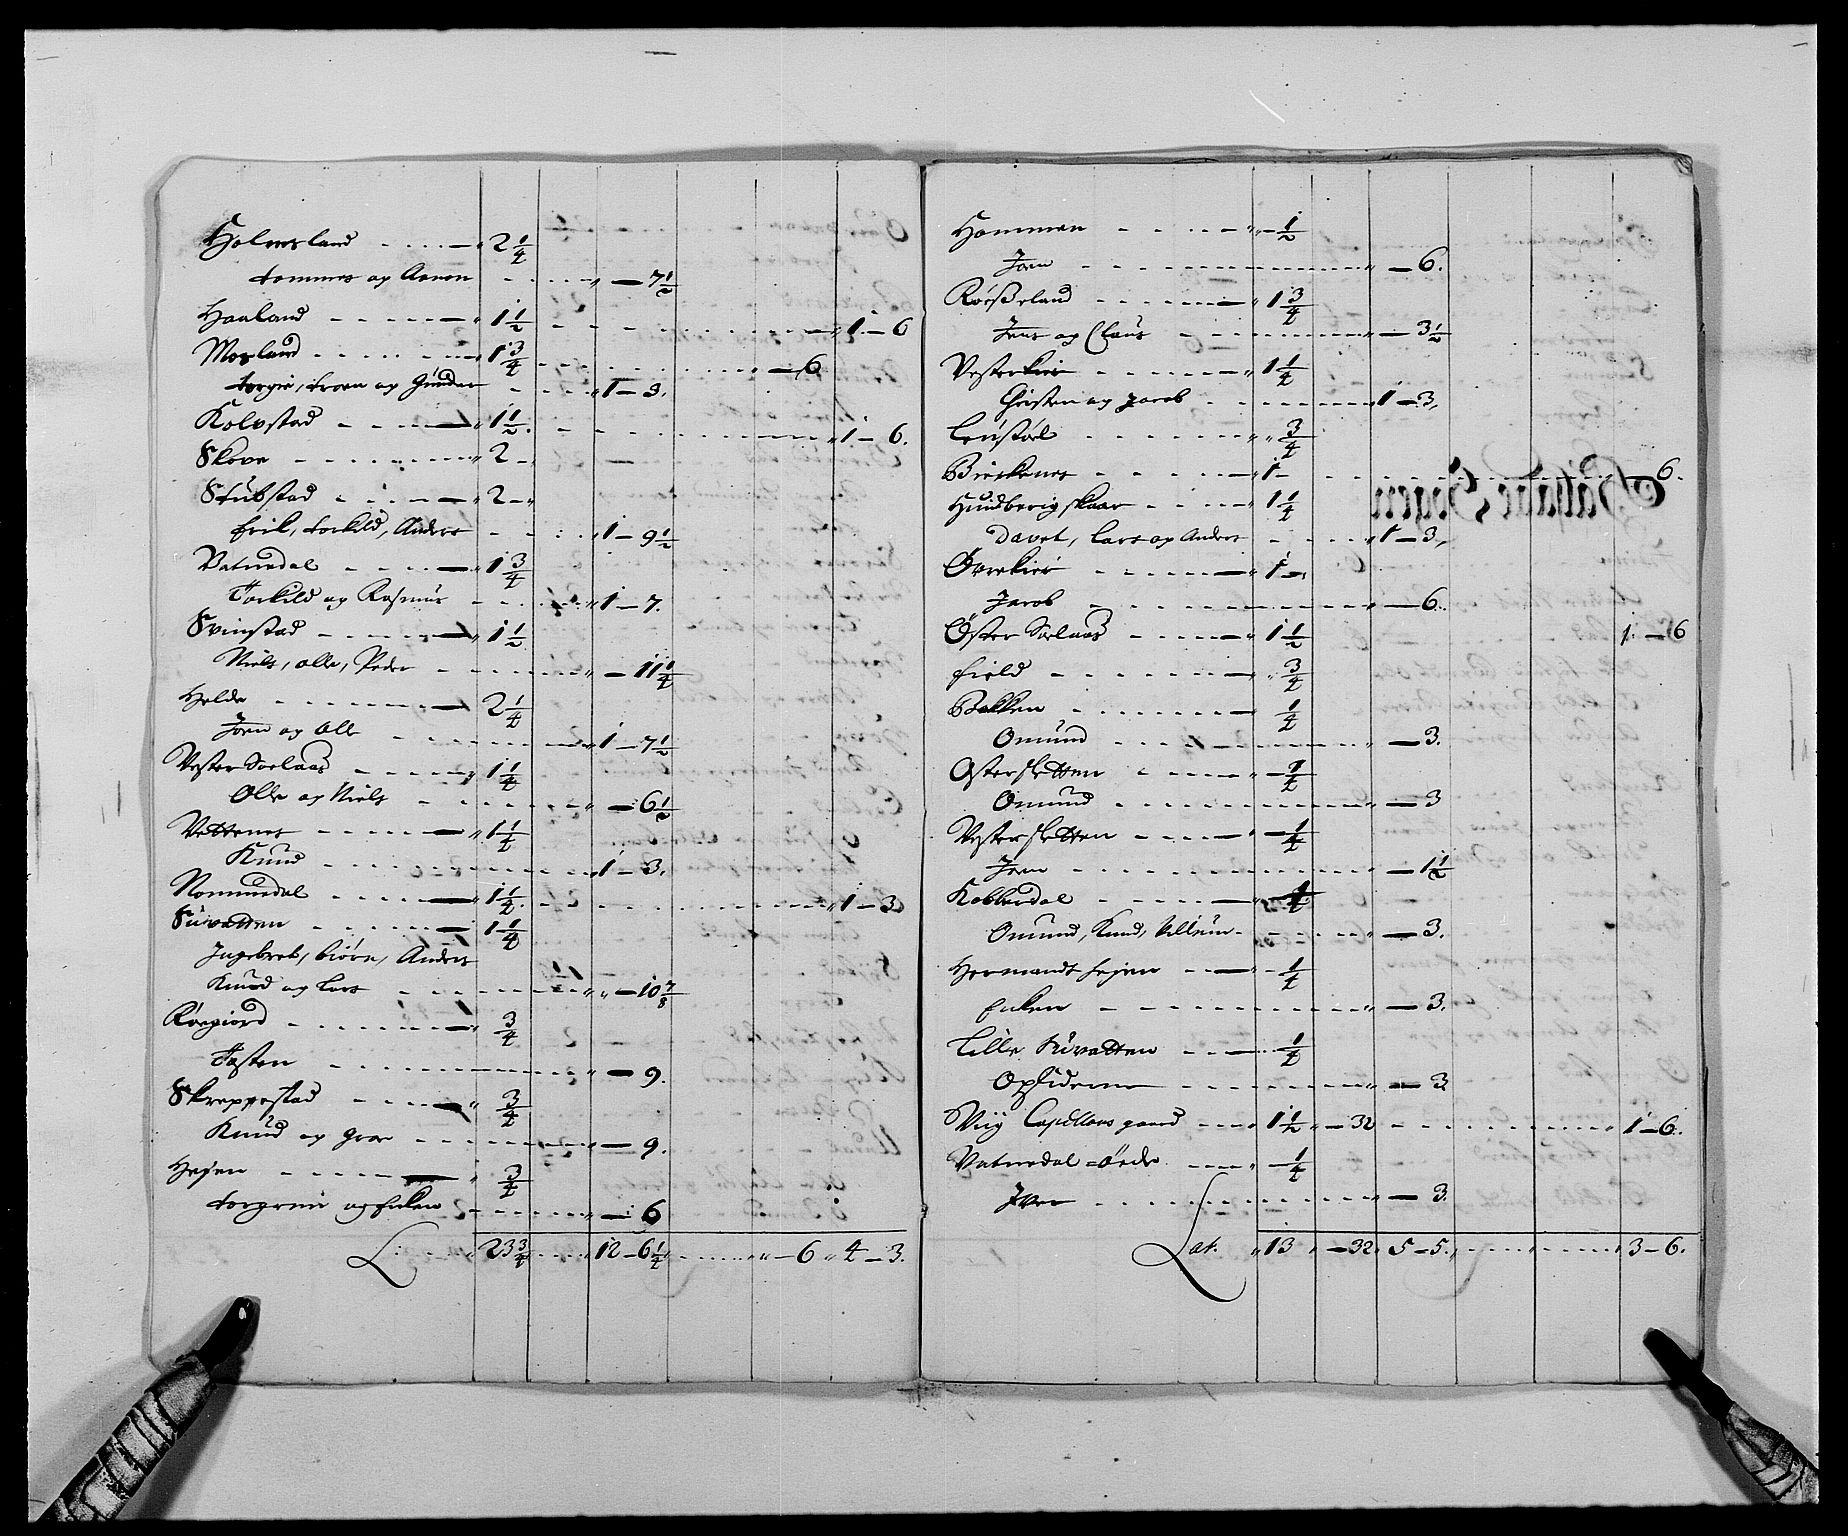 Holmesland - - - - 2 1/4
Tommes og Aanen - - - - 7 1/2
Haaland - - - - 1 1/2 - - - - 1 - 6
Mosland - - - - 1 3/4 - - - - 6
torgie, troen og Gunder - - - 1 - 3.
Kolvstad - - - - 1 1/2. - - - - 1 - 6.
Skove - - - - 2 -
Stubstad - - - - 2 -
Erik, torkild, Anders - - - 1 - 9 1/2
Vatnedal - - - - 1 3/4
Torkild og Rasmus - - - 1 - 7.
Svinstad - - - - 1 1/2
Niels, olle, Peder - - - - 11 1/4
Helde - - - - 2 1/4
Joen og Olle - - - 1 - 7 1/2
Vester Soelaas - - - - 1 1/4
Olle og Niels - - - - 6 1/2
Vettenes - - - - 1 1/4
Knud - - - - 1 - 3.
Nommedal - - - - 1 1/4. - - - - 1 - 3
Suvatten - - - - 1 1/4
Ingebret, biørn, Anders
Knud og Lars - - - - 10 7/8
Røegiord - - - - 3/4
Tosten - - - - 9.
Skreppestad - - - - 3/4
Knud og - - - - 9.
Hejen - - - - 3/4
og Enken - - - - 6
L: - - - 23 3/4 - - 12 - 6 1/4 - - - 6 4 - 3.
Hommen - - - - 1/2
Joen - - - - 6.
Røeßeland - - - - 1 3/4
Jens og Claus - - - - 3 1/2
Vesterkier - - - - 1 1/4
Christen og Jacob - - - - 1 - 3,
Lenstøel - - - - 3/4
Birckenes - - - - 1 - - - - - 6.
Hundberigskaar - - - - 1 1/4
Davet, Lars og Anders - - - - 1 - 3,
Øvrekier - - - - 1 -
Jacob - - - - 6.
Øster Soelaas - - - - 1 1/2 1. - 6
field - - - - 3/4
Bakken - - - - 1/4
Omund - - - - 3.
Østersletten - - - - 1/4
Omund - - - - 3
Vestersletten - - - - 1/4
Joen - - - - 1 1/2
Kobberdal - - - - 1/4
Omund, Knud, Villum - - - - 3.
Hermandshejen - - - 1/4
Enken - - - - 3.
Lille Suvatten - - - 1/4
Opsiderne - - - - 3
Viig Capellans gaard - - - 1 1/2 - 32 - - - - 1 - 6.
Vatnedal = øede - - - 1/4
Iver - - - - 3.
Lat. 13 - 32 5 - 5. - - - 3 - 6.